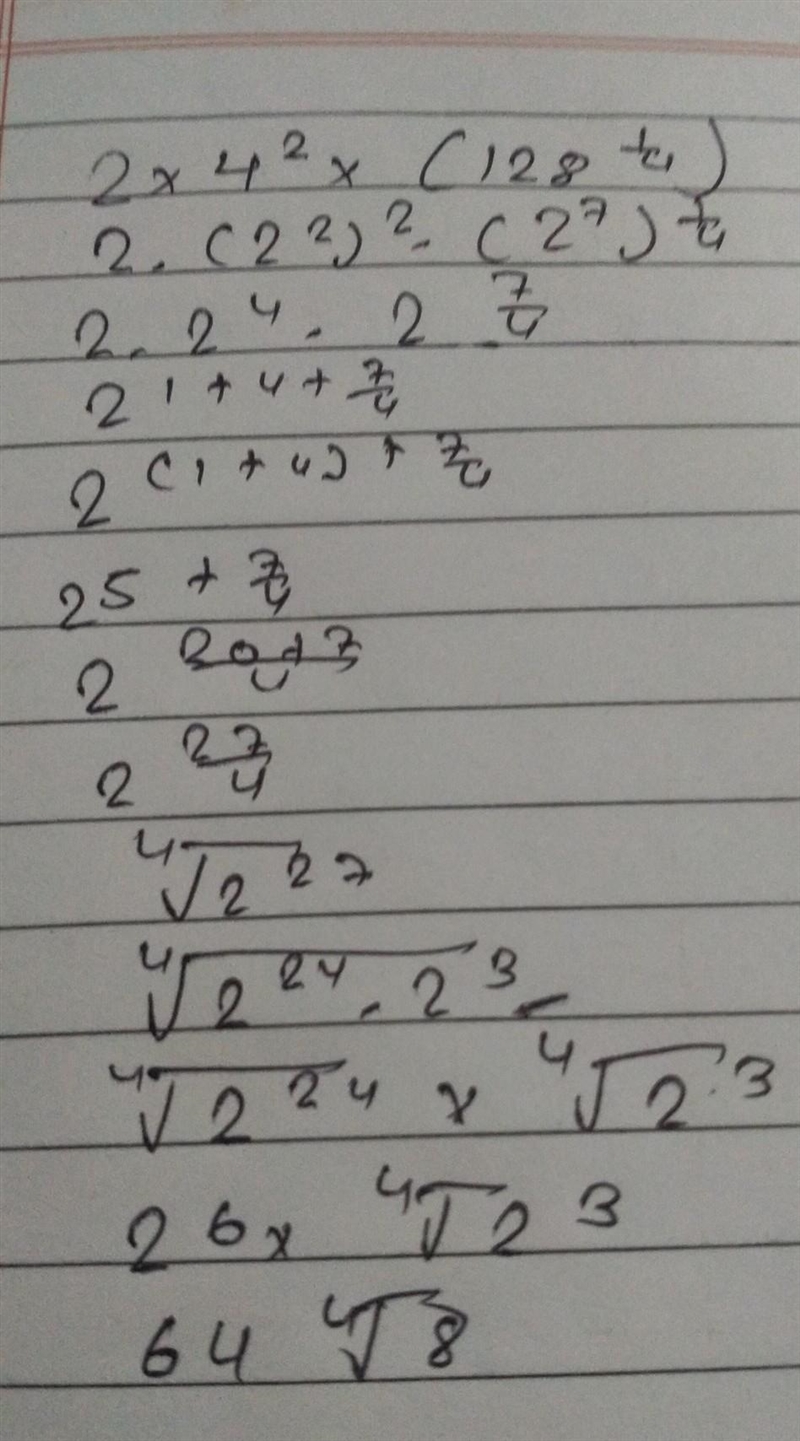 2 × 4² × (128^¼)
2 . (2²)² . (2⁷)^¼
2 . 2⁴ . 2^7/4
2^1 + 4 + 7/4
2^(1 + 4) + 7/4
2^5 + 7/4
2^(20+7)/4
2^27/4
⁴√2²⁷
⁴√2²⁴ . 2³
⁴√2²⁴ × ⁴√2³
2⁶ × ⁴√2³
64 ⁴√8